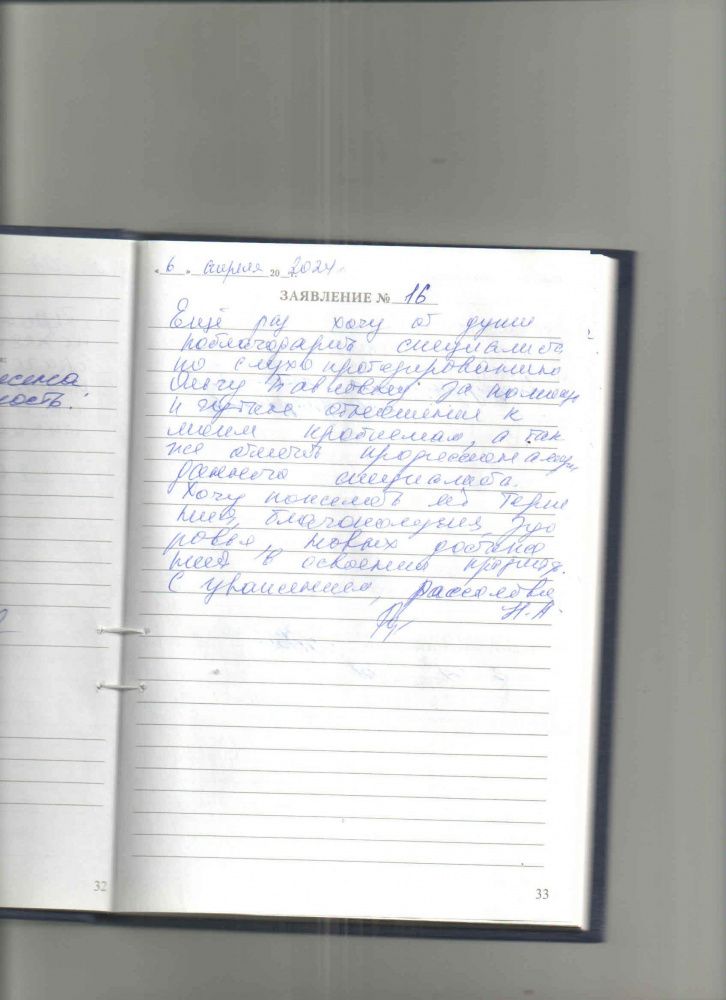 « 6 » апреля 20 2024 г.
ЗАЯВЛЕНИЕ № 16
Ещё раз хочу от души
поблагодарить специалиста
по слухопротезированию
Ольгу Павловну за помощь
и чуткое отношение к
моим проблемам, а так
же отметить профессионализм
данного специалиста.
Хочу пожелать ей терпе
ния, благополучия, здо
ровья, новых достиже
ний в освоении
С уважением,
Н.А.
ность!
32
33